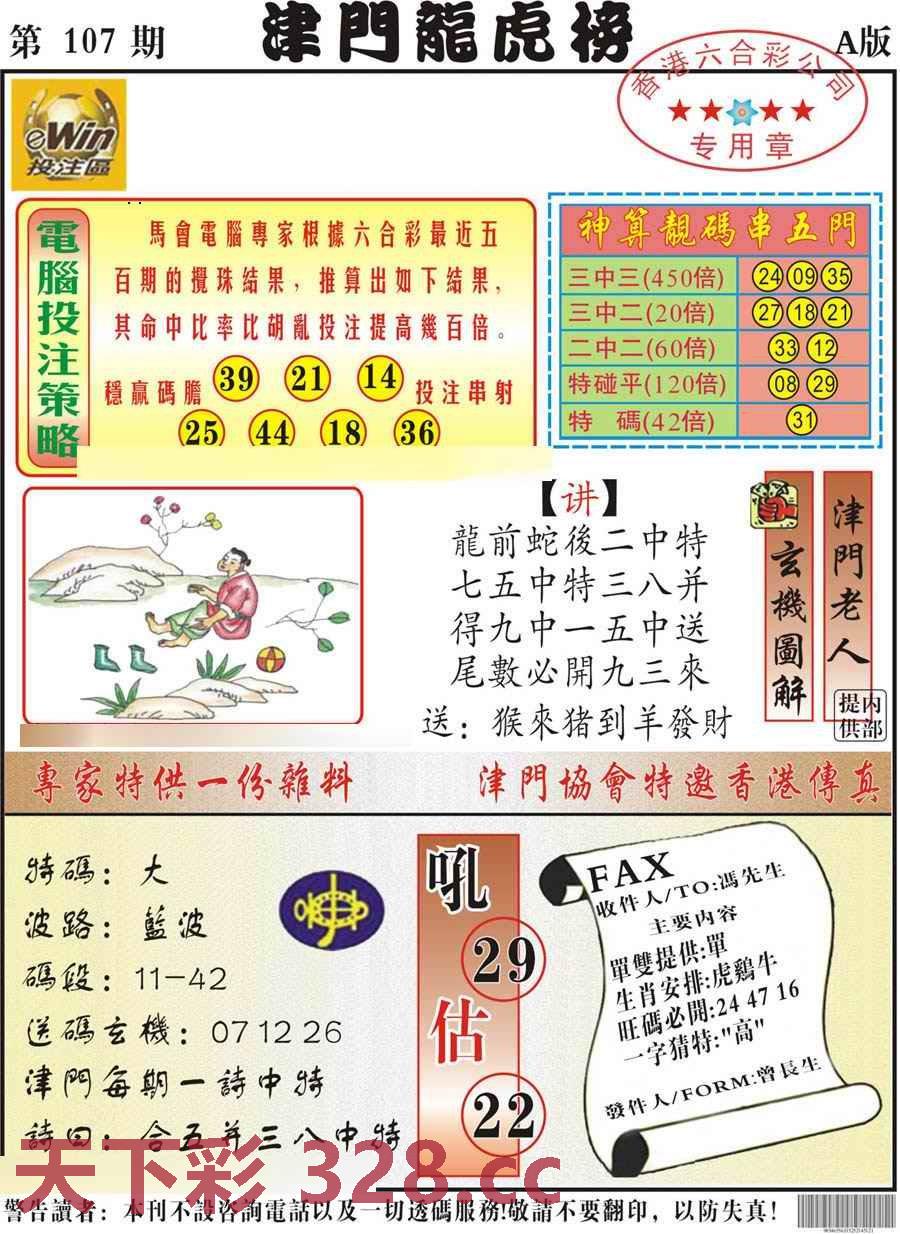 第 107 期
津門龍虎榜
A版
香港六合彩公司
专用章
eWin
投注區
電腦投注策略
馬會電腦專家根據六合彩最近五
百期的攪珠结果，推算出如下结果,
其命中比率比胡亂投注提高幾百倍。
穩赢碼膽 39 21 14 投注串射
25 44 18 36
神算靚碼串五門
三中三(450倍) 24 09 35
三中二(20倍) 27 18 21
二中二(60倍) 33 12
特碰平(120倍) 08 29
特 碼(42倍) 31
【讲】
龍前蛇後二中特
七五中特三八并
得九中一五中送
尾數必開九三來
送：猴來猪到羊發財
玄機圖解
津門老人
内部提供
專家特供一份雜料
津門協會特邀香港傳真
特碼：大
波路：藍波
碼段：11-42
送碼玄機：07 12 26
津門每期一詩中特
詩曰：合五并三八中特
吼
29
估
22
FAX
收件人/TO:馮先生
主要内容
單雙提供:單
生肖安排:虎鷄牛
旺碼必開:24 47 16
一字猜特:"高"
發件人/FORM:曾長生
天下彩 328.cc
警告讀者：本刊不設咨詢電話以及一切透碼服務!敬請不要翻印，以防失真!